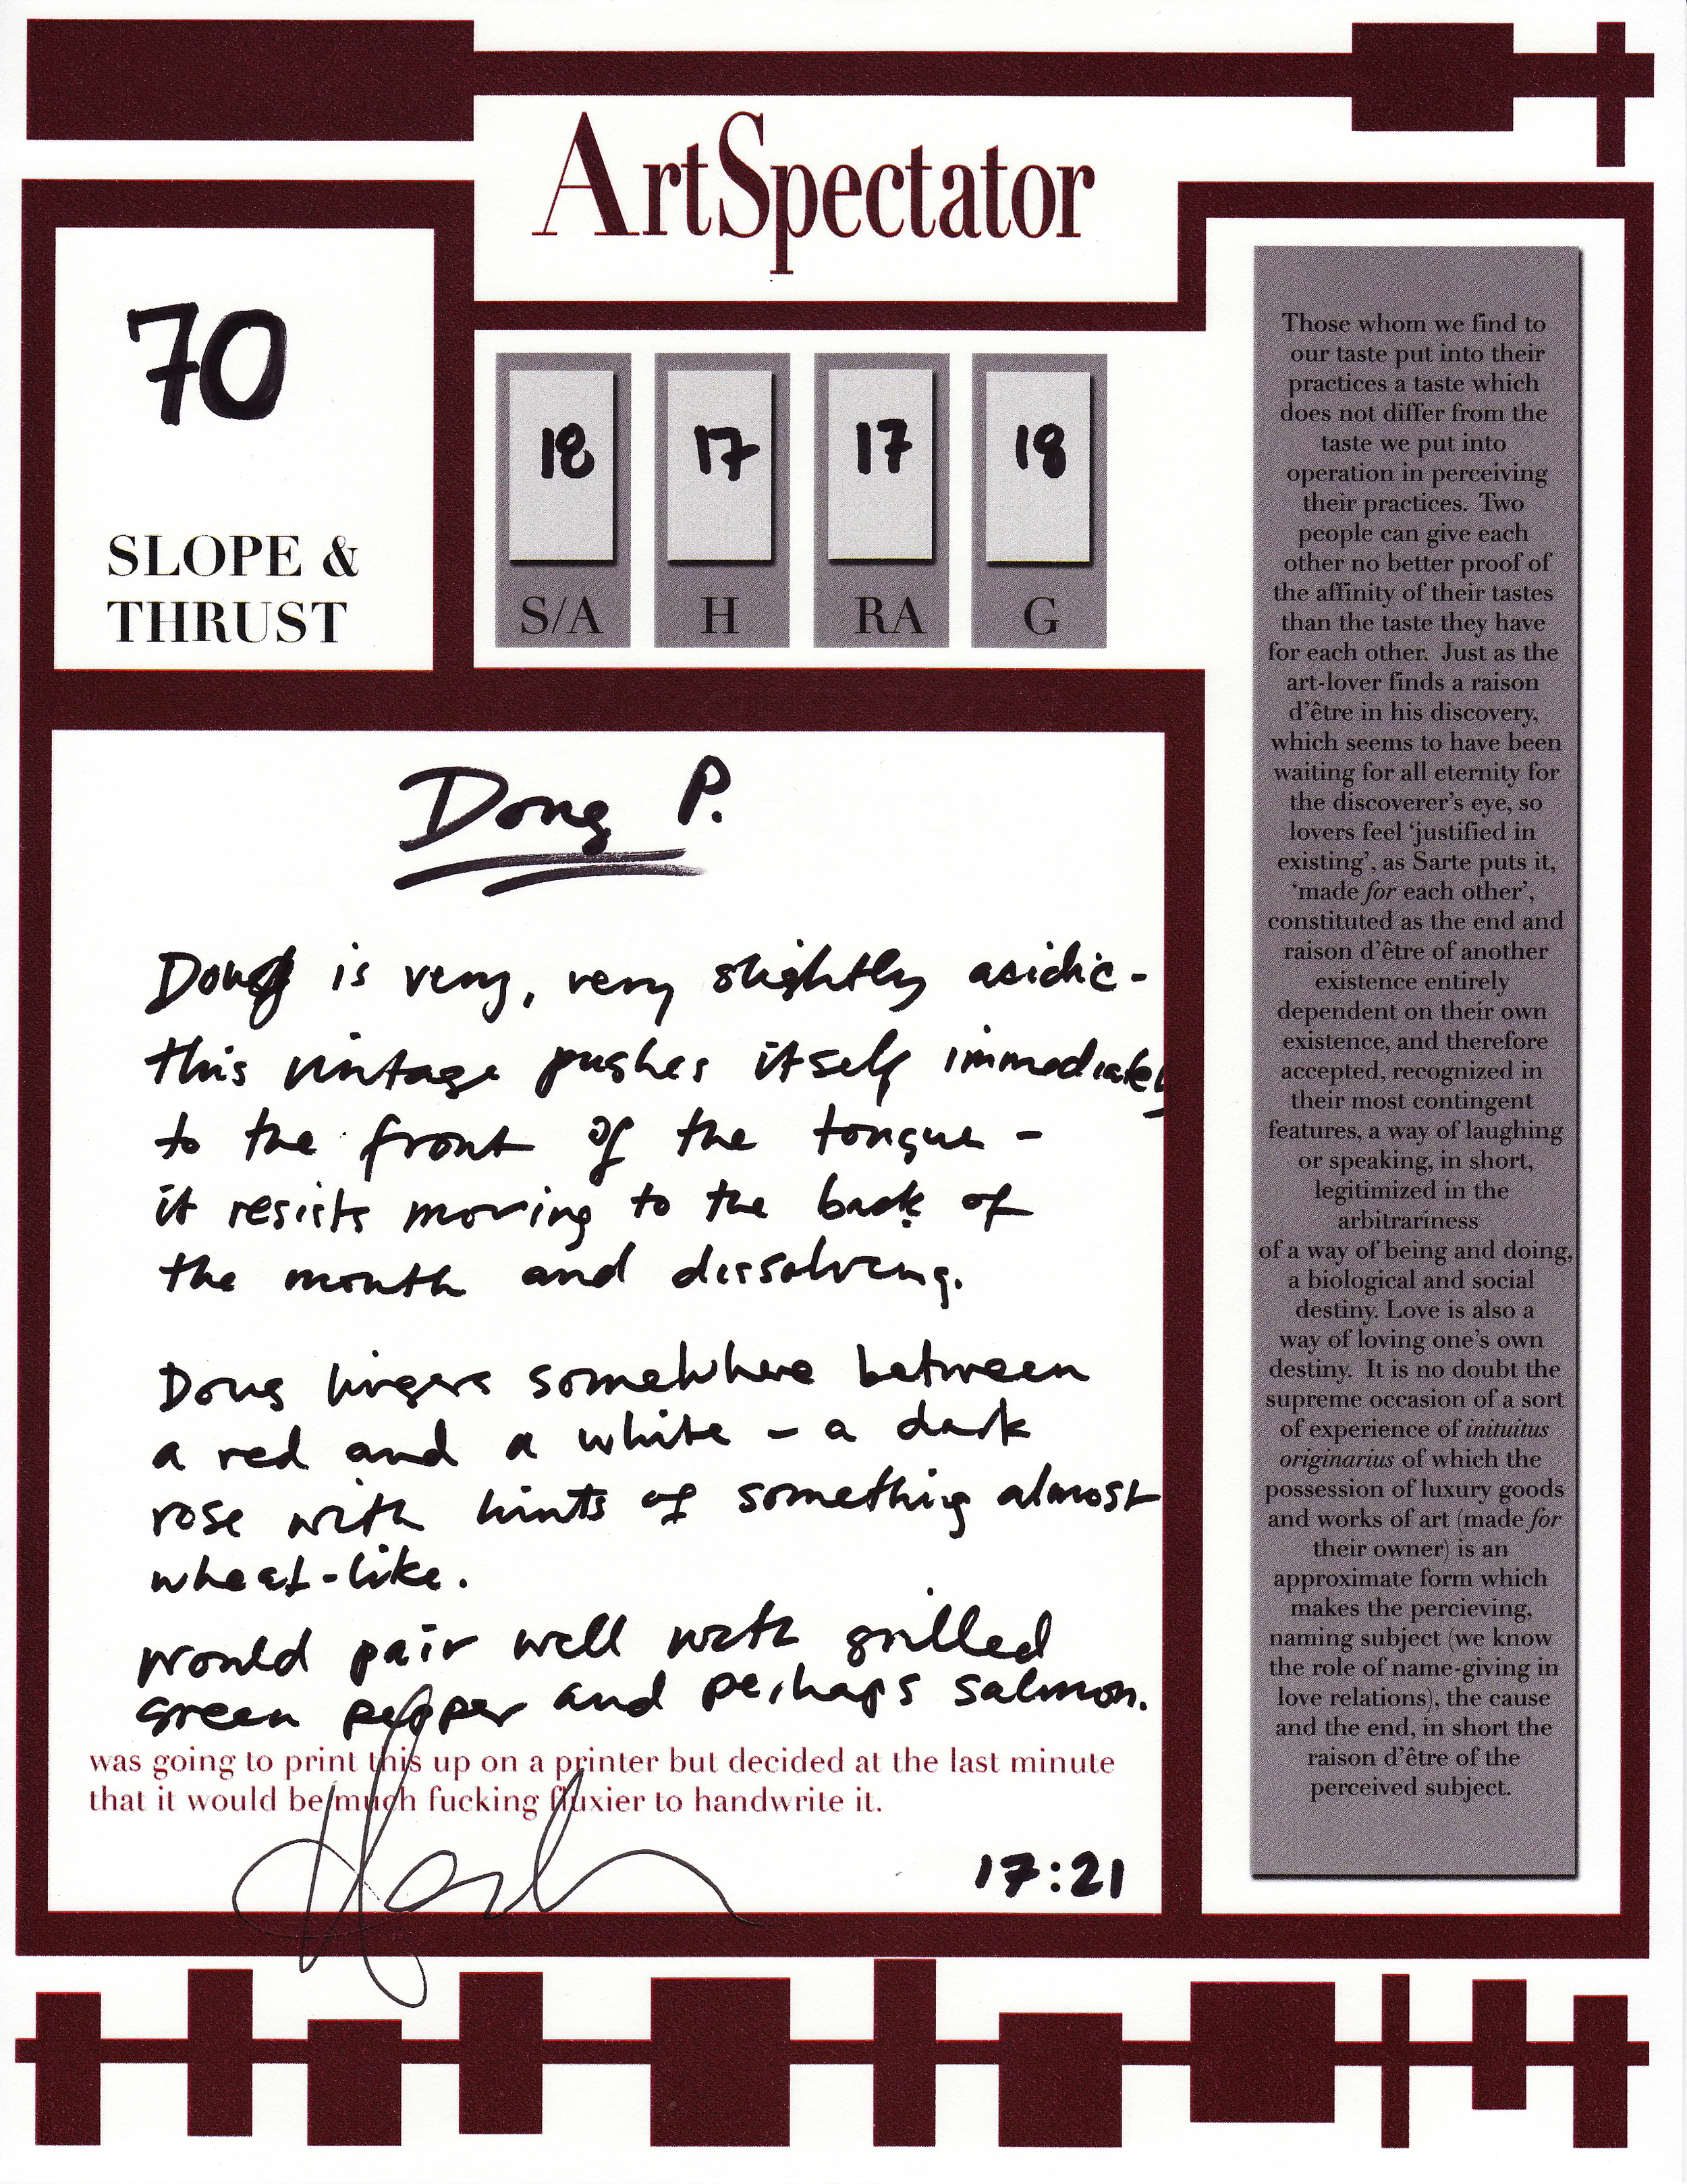 ArtSpectator
70
SLOPE &
THRUST
18
17
17
18
S/A
H
RA
G
Doug P.
Doug is very, very slightly acidic -
this vintage pushes itself immediately
to the front of the tongue -
it resists moving to the back of
the mouth and dissolving.
Doug lingers somewhere between
a red and a white - a dark
rose with hints of something almost
wheat-like.
would pair well with grilled
green pepper and perhaps salmon.
was going to print this up on a printer but decided at the last minute
that it would be much fucking fluxier to handwrite it.
17:21
Those whom we find to
our taste put into their
practices a taste which
does not differ from the
taste we put into
operation in perceiving
their practices. Two
people can give each
other no better proof of
the affinity of their tastes
than the taste they have
for each other. Just as the
art-lover finds a raison
d'être in his discovery,
which seems to have been
waiting for all eternity for
the discoverer's eye, so
lovers feel 'justified in
existing', as Sarte puts it,
'made for each other',
constituted as the end and
raison d'être of another
existence entirely
dependent on their own
existence, and therefore
accepted, recognized in
their most contingent
features, a way of laughing
or speaking, in short,
legitimized in the
arbitrariness
of a way of being and doing,
a biological and social
destiny. Love is also a
way of loving one's own
destiny. It is no doubt the
supreme occasion of a sort
of experience of inituitus
originarius of which the
possession of luxury goods
and works of art (made for
their owner) is an
approximate form which
makes the percieving,
naming subject (we know
the role of name-giving in
love relations), the cause
and the end, in short the
raison d'être of the
perceived subject.